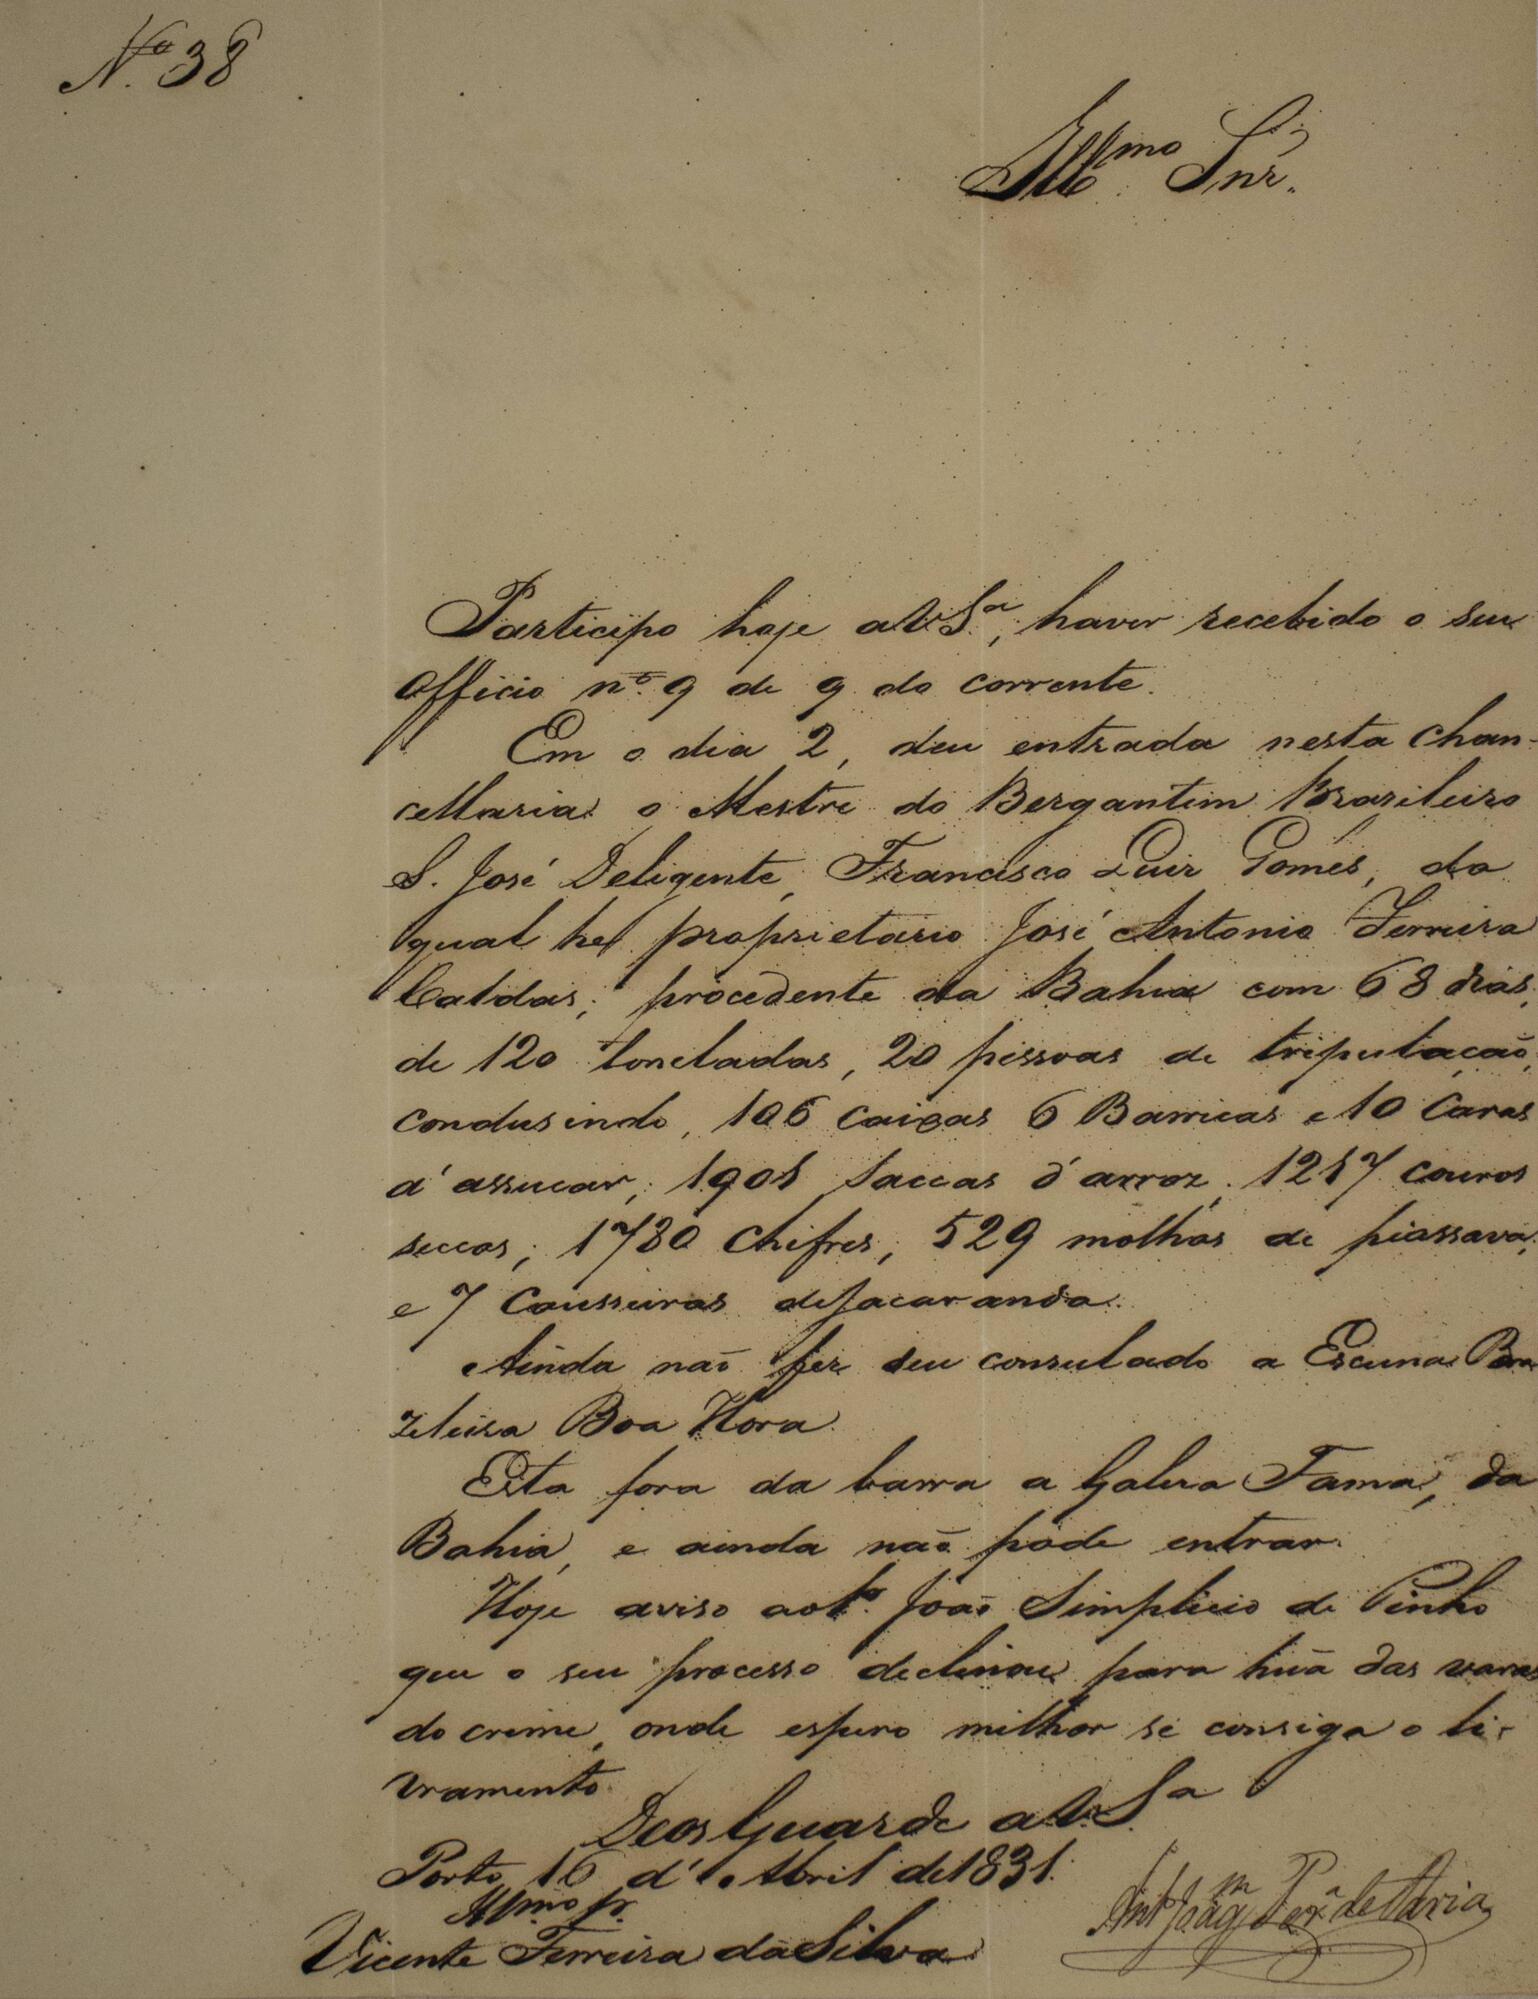 Nº 38
Illmo Snr.
Participo hoje a V. Sª, haver recebido o seu
officio nº 9 de 9 do corrente.
Em o dia 2, deu entrada nesta Chan-
cellaria o Mestre do Bergantim Brazileiro
S. José Deligente, Francisco Luiz Gomes, do
qual he proprietario José Antonio Ferreira
Caldas; procedente da Bahia com 68 dias,
de 120 toneladas, 20 pessoas de tripulação,
condusindo, 106 caixas 6 Barricas e 10 Caras
d'assucar; 1901 saccas d'arroz; 1217 couros
seccos; 1780 Chifres; 529 molhos de piassava,
e 7 Cousseiras de Jacaranda.
Ainda não fez seu consulado a Escuna Bra
zileira Boa Hora.
Esta fora da barra a Galera Fama, da
Bahia, e ainda não pode entrar.
Hoje aviso ao João Simplicio de Pinho
que o seu processo declinou para hũa das varas
do crime, onde espero milhor se consiga o li-
vramento.
Deos Guarde a V. Sª
Porto 16 d'Abril de 1831.
Illmo Sr.
Vicente Ferreira da Silva
Antº Joaqm Perª de Faria